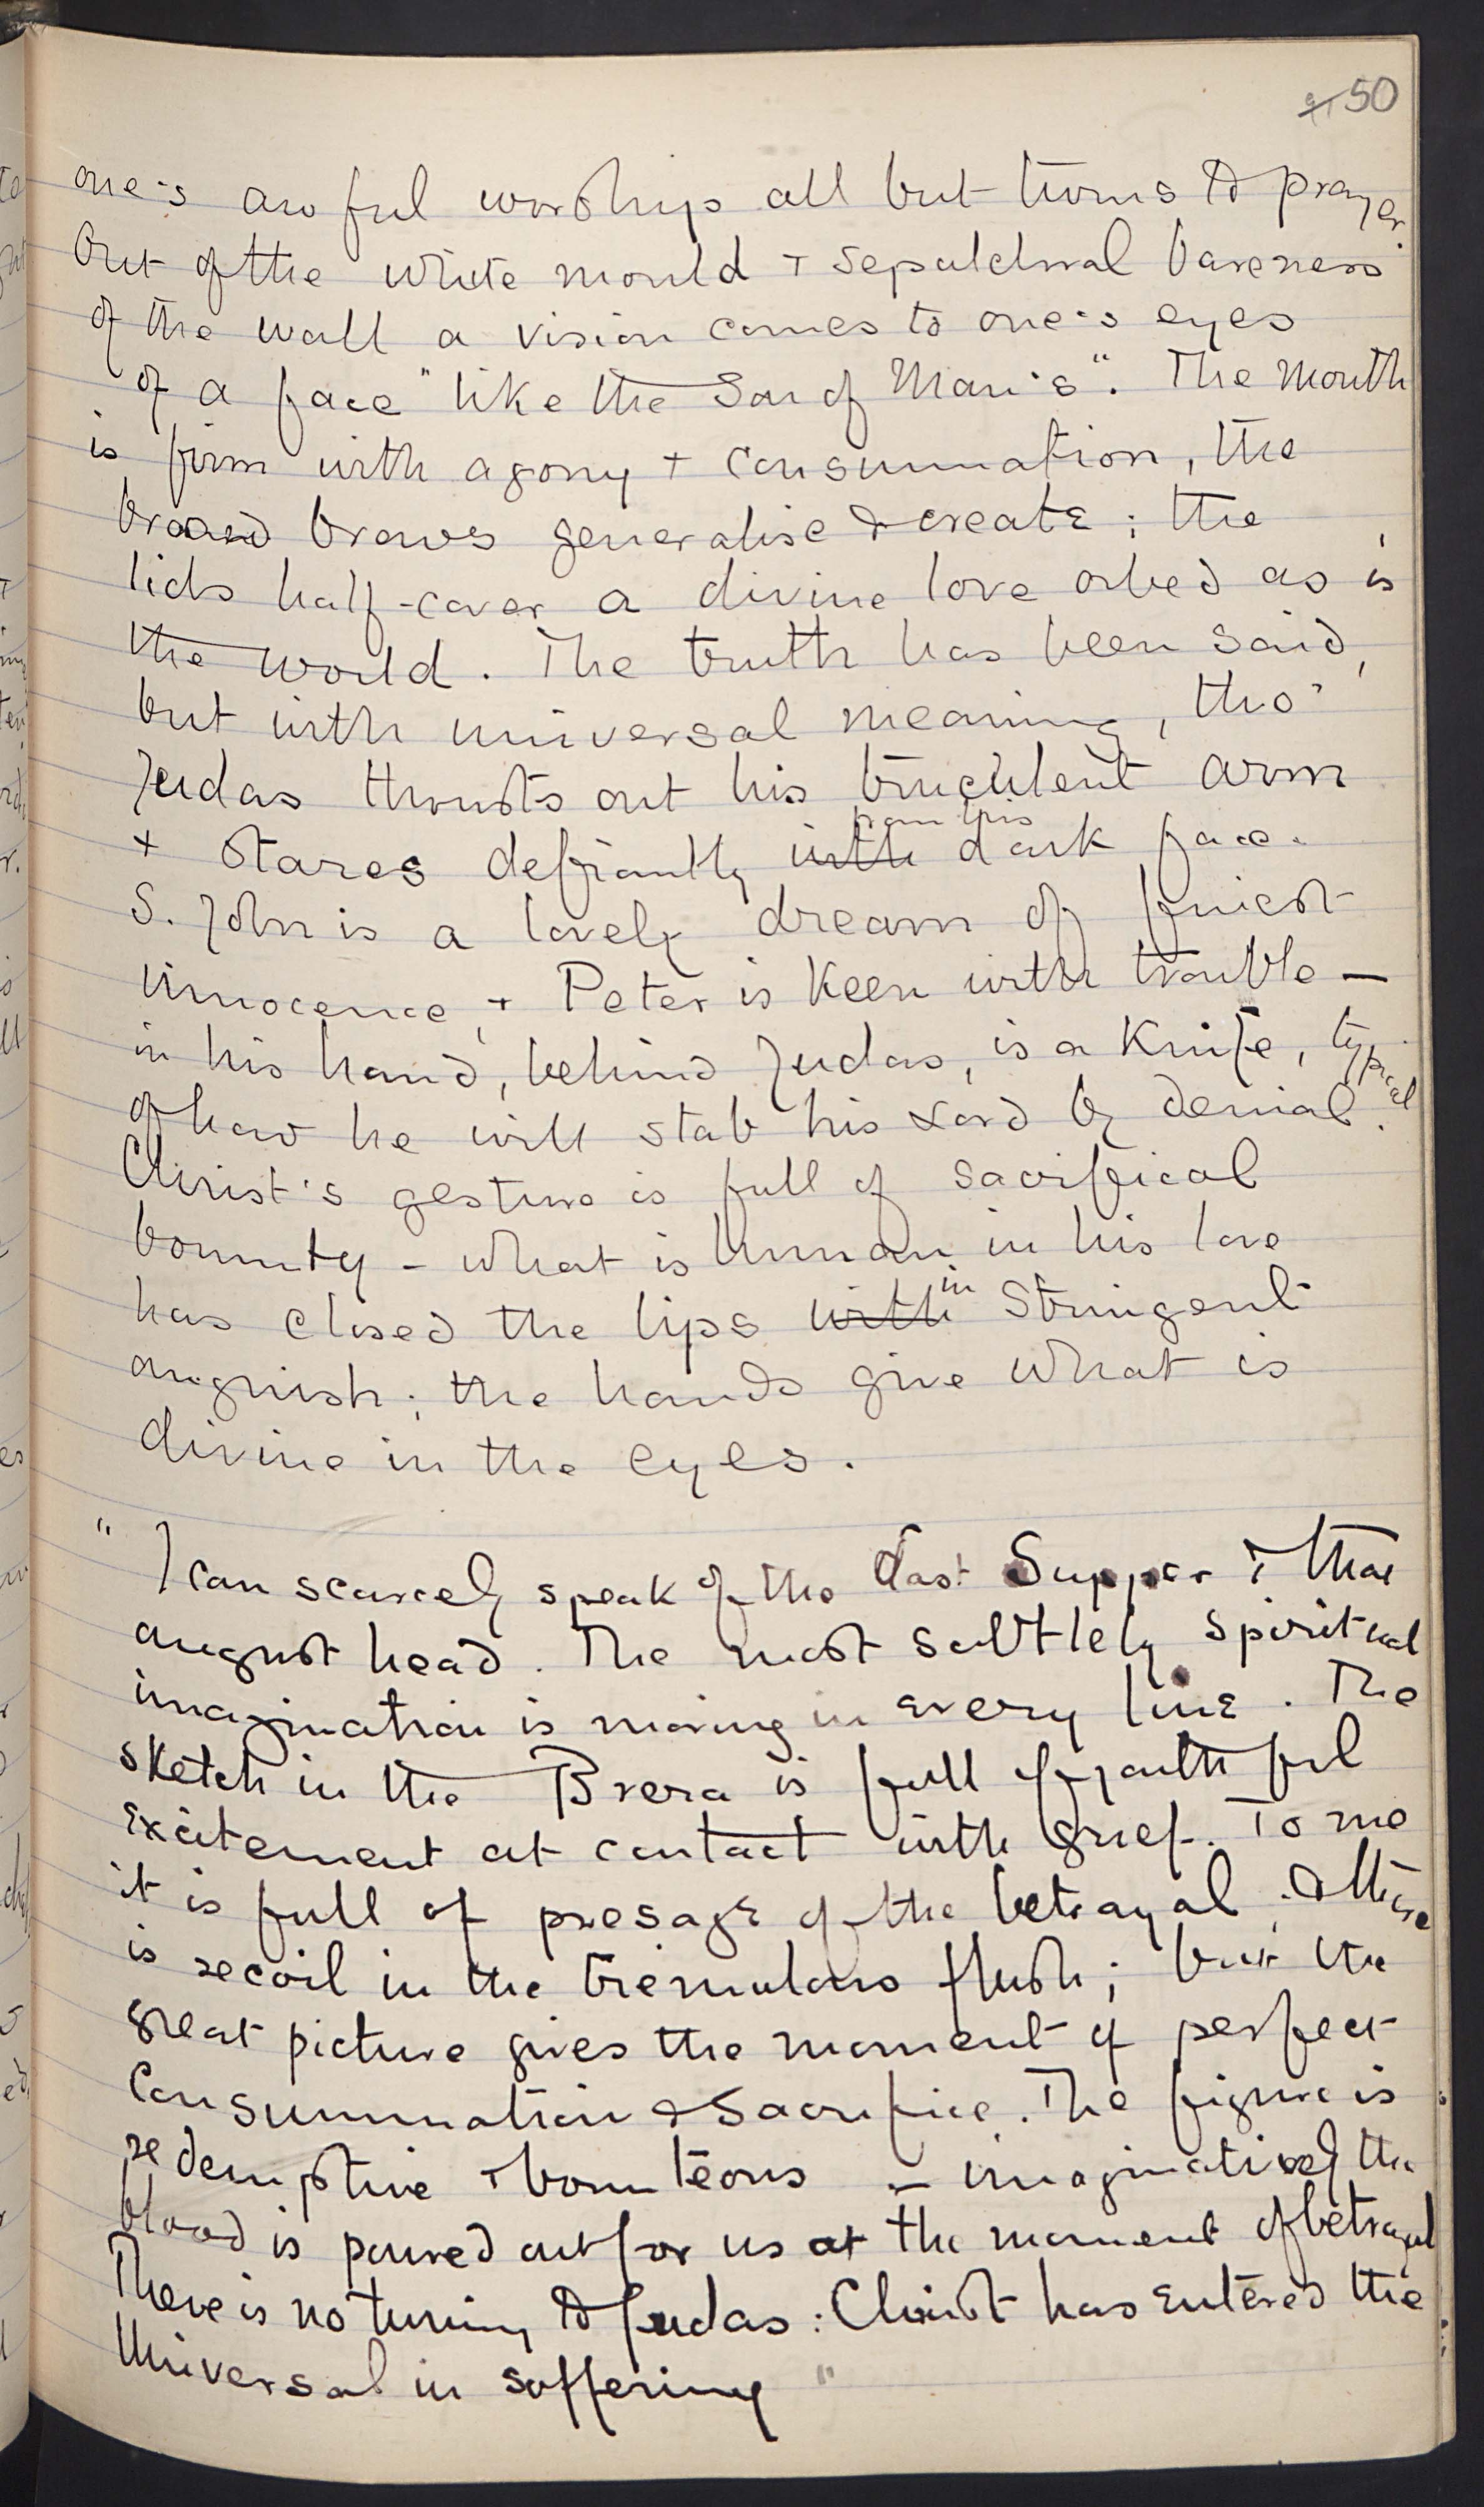 50
one's awful worship all but turns to prayer.
Out of the white mould + sepulchral bareness
of the wall a vision comes to one's eyes
of a face "like the Son of Man's". The mouth
is firm with agony + consummation, the
broad brows generalise & create; the
lids half-cover a divine love orbed as is
the world. The truth has been said,
but with universal meaning, tho'
Judas thrusts out his truculent arm
from his
+ stares defiantly with dark face.
S. John is a lovely dream of
innocence, + Peter is keen with trouble —
in his hand, behind Judas, is a knife, typical
of how he will stab his Lord by denial.
Christ's gesture is full of sacrificial
bounty - what is human in his love
has closed the lips with in stringent
anguish; the hands give what is
divine in the eyes.
" I can scarcely speak of the Last Supper & that
august head. The most subtlely spiritual
imagination is moving in every line. The
sketch in the Brera is full of youthful
excitement at contact with grief. To me
it is full of presage of the betrayal, & there
is recoil in the tremulous flush; but the
great picture gives the moment of perfect
consummation & sacrifice. The figure is
redemptive + bounteous – imaginatively the
blood is poured out for us at the moment of betrayal
There is no turning to Judas: Christ has entered the
Universal in suffering "